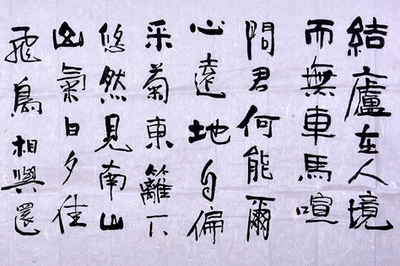 結廬在人境
而無車馬喧
問君何能爾
心遠地自偏
采菊東籬下
悠然見南山
山氣日夕佳
飛鳥相與還